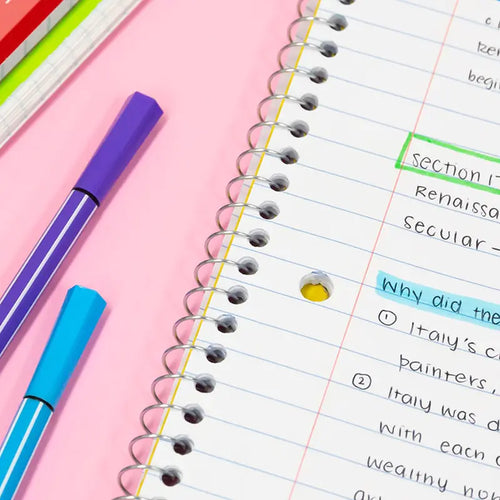 begin
Section 1
Renaissa
Secular -
Why did the
① Italy's c
painters,
② Italy was d
with each o
wealthy nor